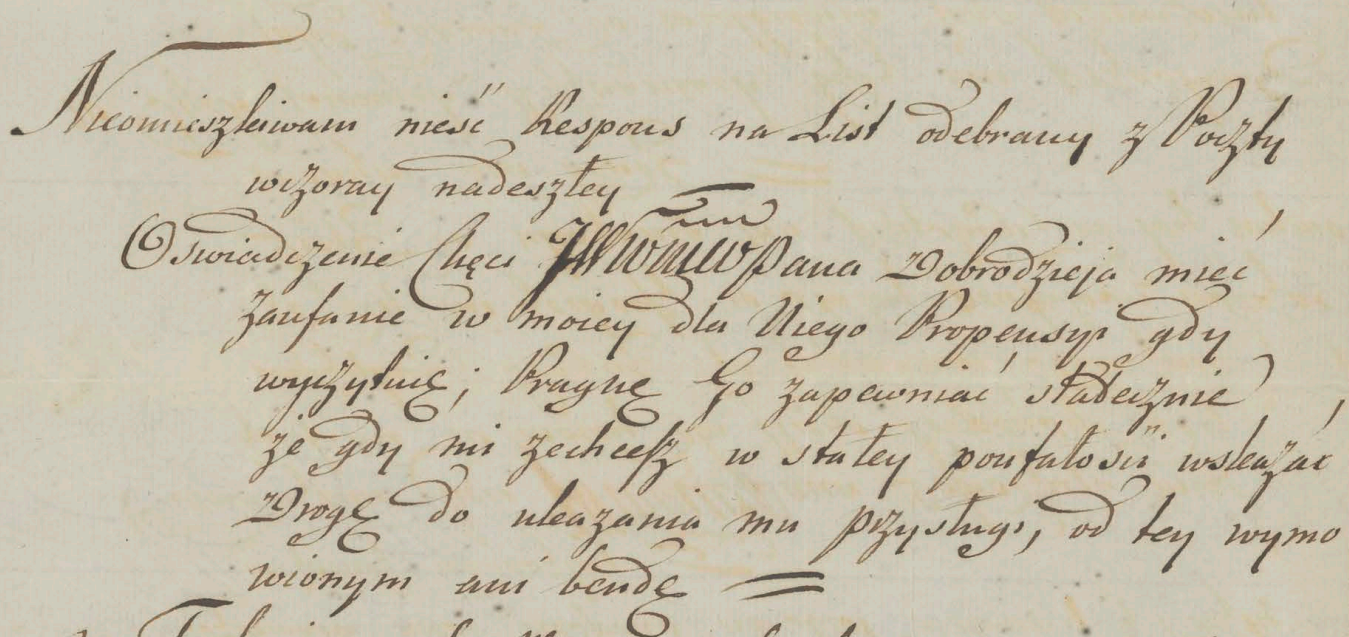 Nieomieszkiwam nieść Respons na List odebrany z Poczty
wczoray nadeszłey
Oswiadczenie Chęci JWWPana Dobrodzieja mieć
zaufanie w moiey dla Niego Propensyi gdy
wyczytuię; Pragnę Go zapewniać statecznie
że gdy mi zechcesz w stałey poufałości wskazać
Drogę do ukazania mu przysługi, od tey wymo
wionym ani bendę =